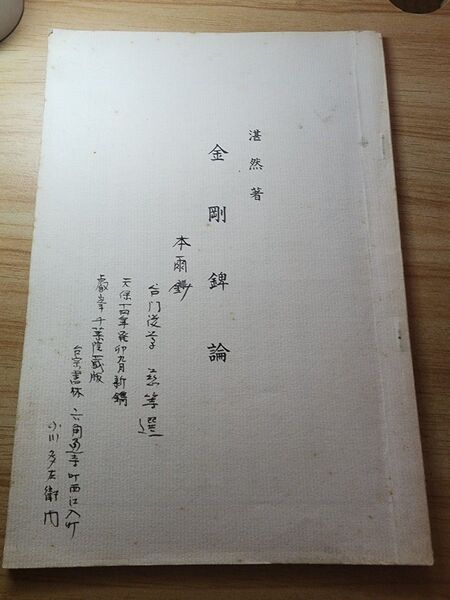 湛然著
金剛錍論
本爾鈔
台门後学 慈等選
天保十四年癸卯九月新鐫
叡峯千葉院蔵版
台宗書林 六角通寺町西江入町
小川多左衛门